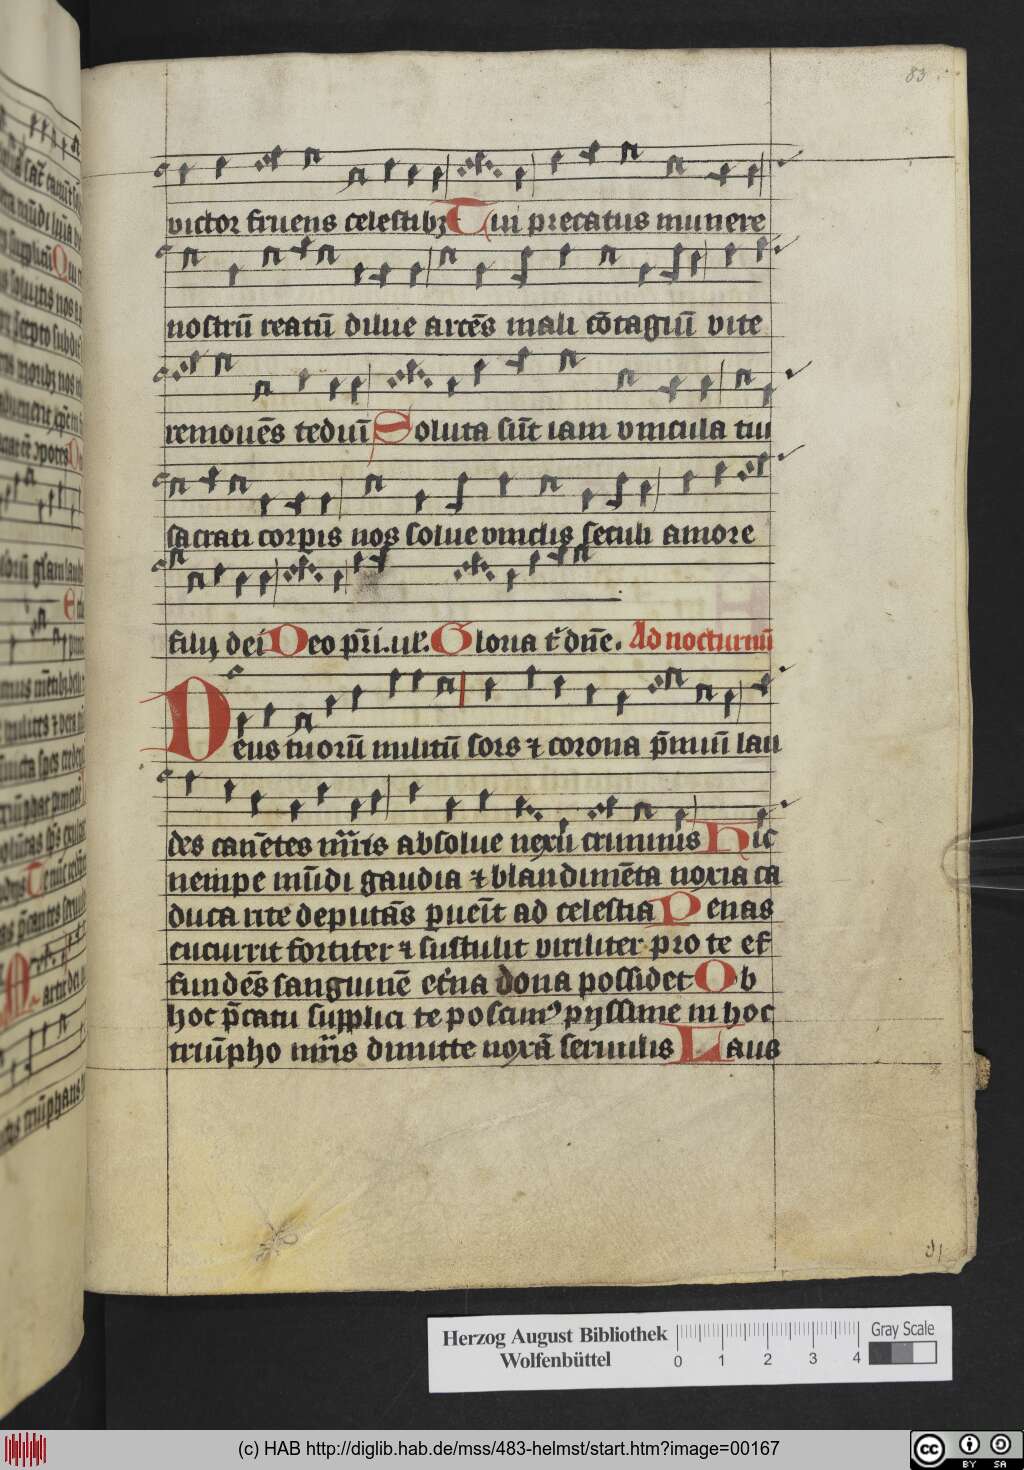 83
victor fruens celestibꝫ Tui precatus munere
nostrū reatū dilue arcēs mali cōtagiū vite
remouēs tediū Soluta sūt iam vincula tui
sacrati corꝑis nos solue vinclis seculi amore
filij dei Deo pr̄i. ul̕. Gloria t̕ dn̄e. Ad nocturnū
Deus tuorū militū sors ⁊ corona p̄miū lau
des canētes mr̄is absolue nexu criminis Hic
nempe mūdi gaudia ⁊ blandimēta noxia ca
duca rite deputās ꝑueīt ad celestia Penas
cucurrit fortiter ⁊ sustulit viriliter pro te ef
fundēs sanguinē et̕na dona possidet Ob
hoc p̄catu supplici te poscimꝰ pijssime in hoc
triūpho mr̄is dimitte noxā seruulis Laus
Herzog August Bibliothek
Wolfenbüttel
0 1 2 3 4
Gray Scale
(c) HAB http://diglib.hab.de/mss/483-helmst/start.htm?image=00167
cc BY SA